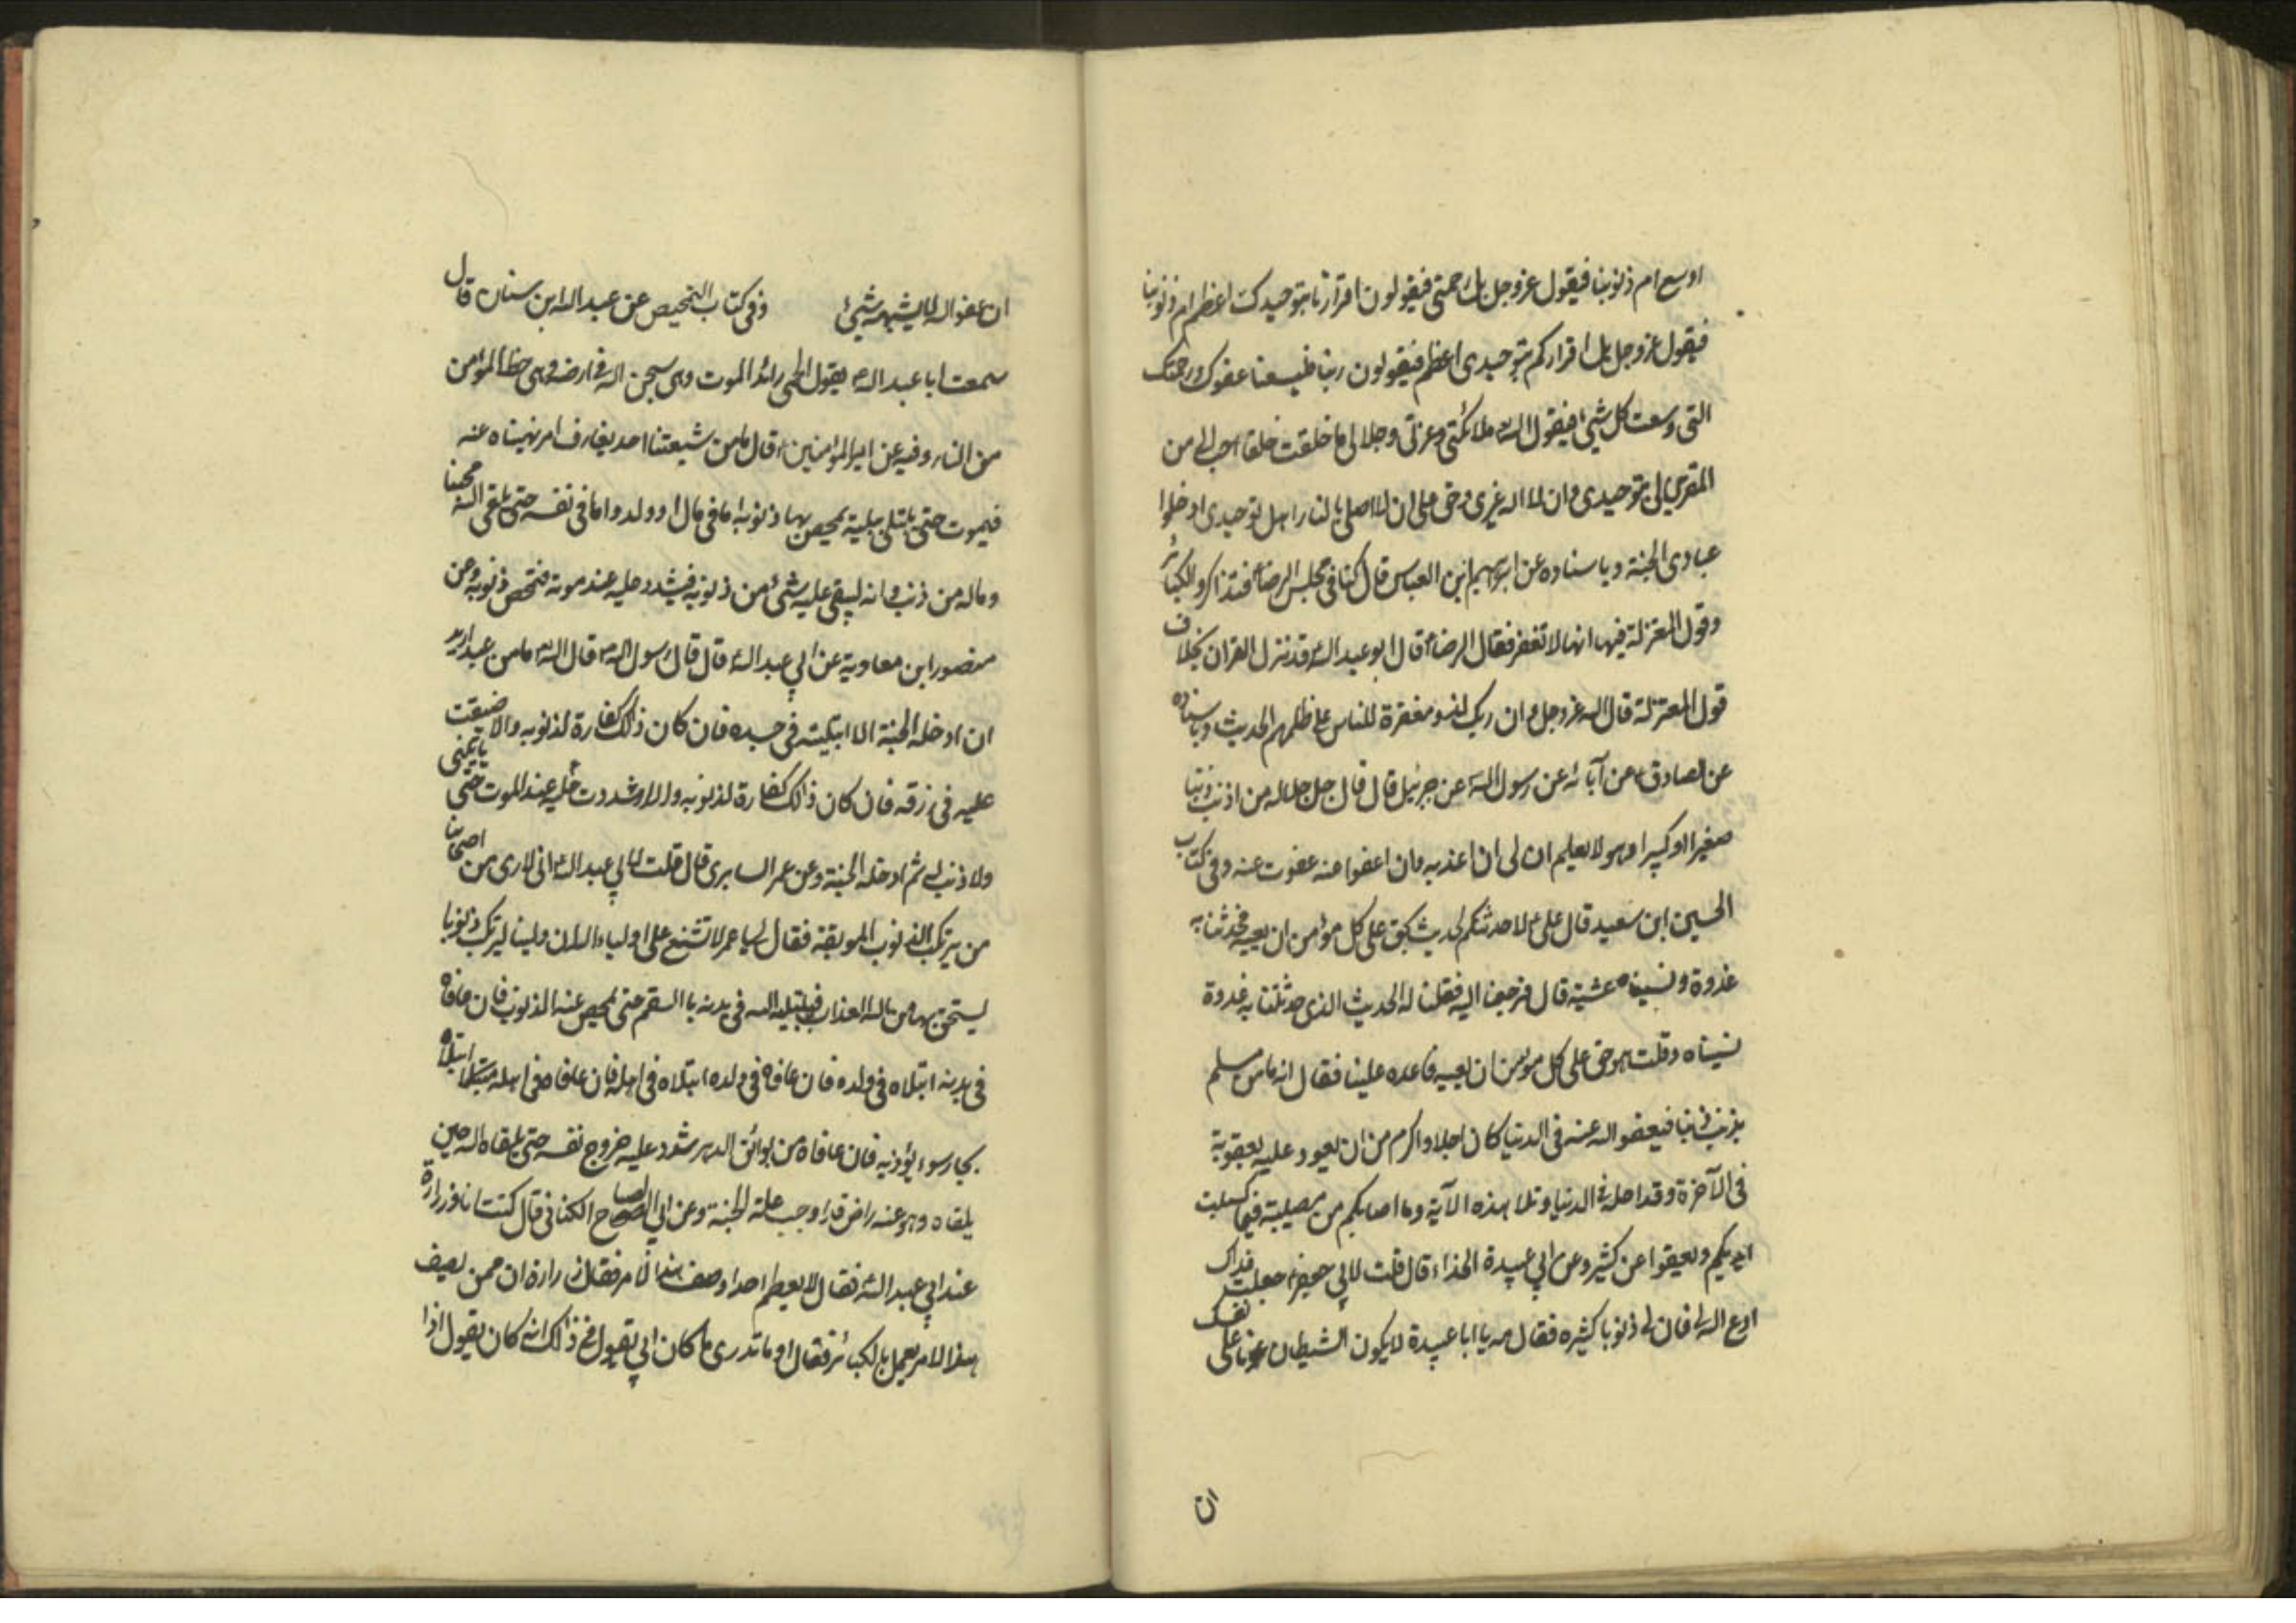 اوسع ام ذنوبنا فيقول عزوجل بل رحمتى فيقولون اقرارنا بتوحيدك اعظم ام ذنوبنا
فيقول عزوجل بل اقراركم بتوحيدى اعظم فيقولون ربنا فليسعنا عفوك ورحمتك
التى وسعت كل شئ فيقول الله ملائكتى وعزتى وجلالى ما خلقت خلقا احب الى من
المقرين لى بتوحيدى وان لا اله غيرى وحق على ان لا اصلى بالنار اهل توحيدى ادخلوا
عبادى الجنة وباسناده عن ابرهيم ابن العباس قال كنا فى مجلس الرضا فتذاكروا الكبائر
وقول المعتزلة فيها انها لا تغفر فقال الرضا قال ابو عبد الله قد نزل القران بخلاف
قول المعتزلة قال الله عزوجل وان ربك لذو مغفرة للناس على ظلمهم الحديث وباسناده
عن الصادق عن آبائه عن رسول الله عن جبرئيل قال قال جل جلاله من اذنب ذنبا
صغيرا او كبيرا وهو لا يعلم ان لى ان اعذبه وان اعفوا عنه عفوت عنه وفى كتاب
الحسين ابن سعيد قال على لاحدثنكم بحديث يحق على كل مؤمن ان يعيه فحدثنا به
غدوة ونسيناه عشية قال فرجعنا اليه فقلنا له الحديث الذى حدثتنا به غدوة
نسيناه وقلت هو حق على كل مؤمن ان يعيه فاعده علينا فقال انه ما من مسلم
يذنب ذنبا فيعفو الله عنه فى الدنيا كان اجل واكرم من ان يعود عليه بعقوبة
فى الآخرة وقد اجله فى الدنيا وتلا هذه الآية وما اصابكم من مصيبة فبما كسبت
ايديكم ويعفوا عن كثير وعن ابى عبيدة الحذاء قال قلت لابى جعفر جعلت فداك
ادع الله لى فان لى ذنوبا كثيره فقال مه يا ابا عبيدة لا يكون الشيطان عونا على نفسك
ان
ان عفو الله لا يشبهه شئ وفى كتاب التمحيص عن عبد الله ابن سنان قال
سمعت ابا عبد الله يقول الحمى رائد الموت وهى سجن الله فى ارضه وهى حظ المؤمن
من النار وفيه عن امير المؤمنين قال ما من شيعتنا احد يقارف امر نهيناه عنه
فيموت حتى يبتلى ببلية تمحص بها ذنوبه اما فى مال او ولد واما فى نفسه حتى يلقى الله محبنا
وماله من ذنب وانه ليبقى عليه شئ من ذنوبه فيشدد عليه عند موته فتمحص ذنوبه وعن
منصور ابن معاوية عن ابى عبد الله قال قال رسول الله قال الله ما من عبد اريد
ان ادخله الجنة الا ابتليته فى جسده فان كان ذلك كفارة لذنوبه والا ضيقت
عليه فى رزقه فان كان ذلك كفارة لذنوبه والا شددت عليه عند الموت حتى ياتينى
ولا ذنب له ثم ادخله الجنة وعن عمر السابرى قال قلت لابى عبد الله انى لارى من اصحابنا
من يرتكب الذنوب الموبقة فقال لى يا عمر لا تشنع على اولياء الله ان ولينا ليرتكب ذنوبا
يستحق بها من الله العذاب فيبتليه الله فى بدنه با السقم حتى تمحص عنه الذنوب فان عافاه
فى بدنه ابتلاه فى ولده فان عافاه فى ولده ابتلاه فى اهله فان عافاه فى اهله ابتلاه
بجار سوء يؤذيه فان عافاه من بوائق الدهر شدد عليه خروج نفسه حتى يلقاه الله حين
يلقاه وهو عنه راض قد اوجب له الجنة وعن ابى الصباح الكنانى قال كنت انا وزرارة
عند ابى عبد الله فقال لا يطعم احدا وصف هذا الامر فقال زرارة ان ممن يصف
هذا الامر يعمل بالكبائر فقال او ما تدرى ما كان ابى يقول فى ذلك انه كان يقول اذا